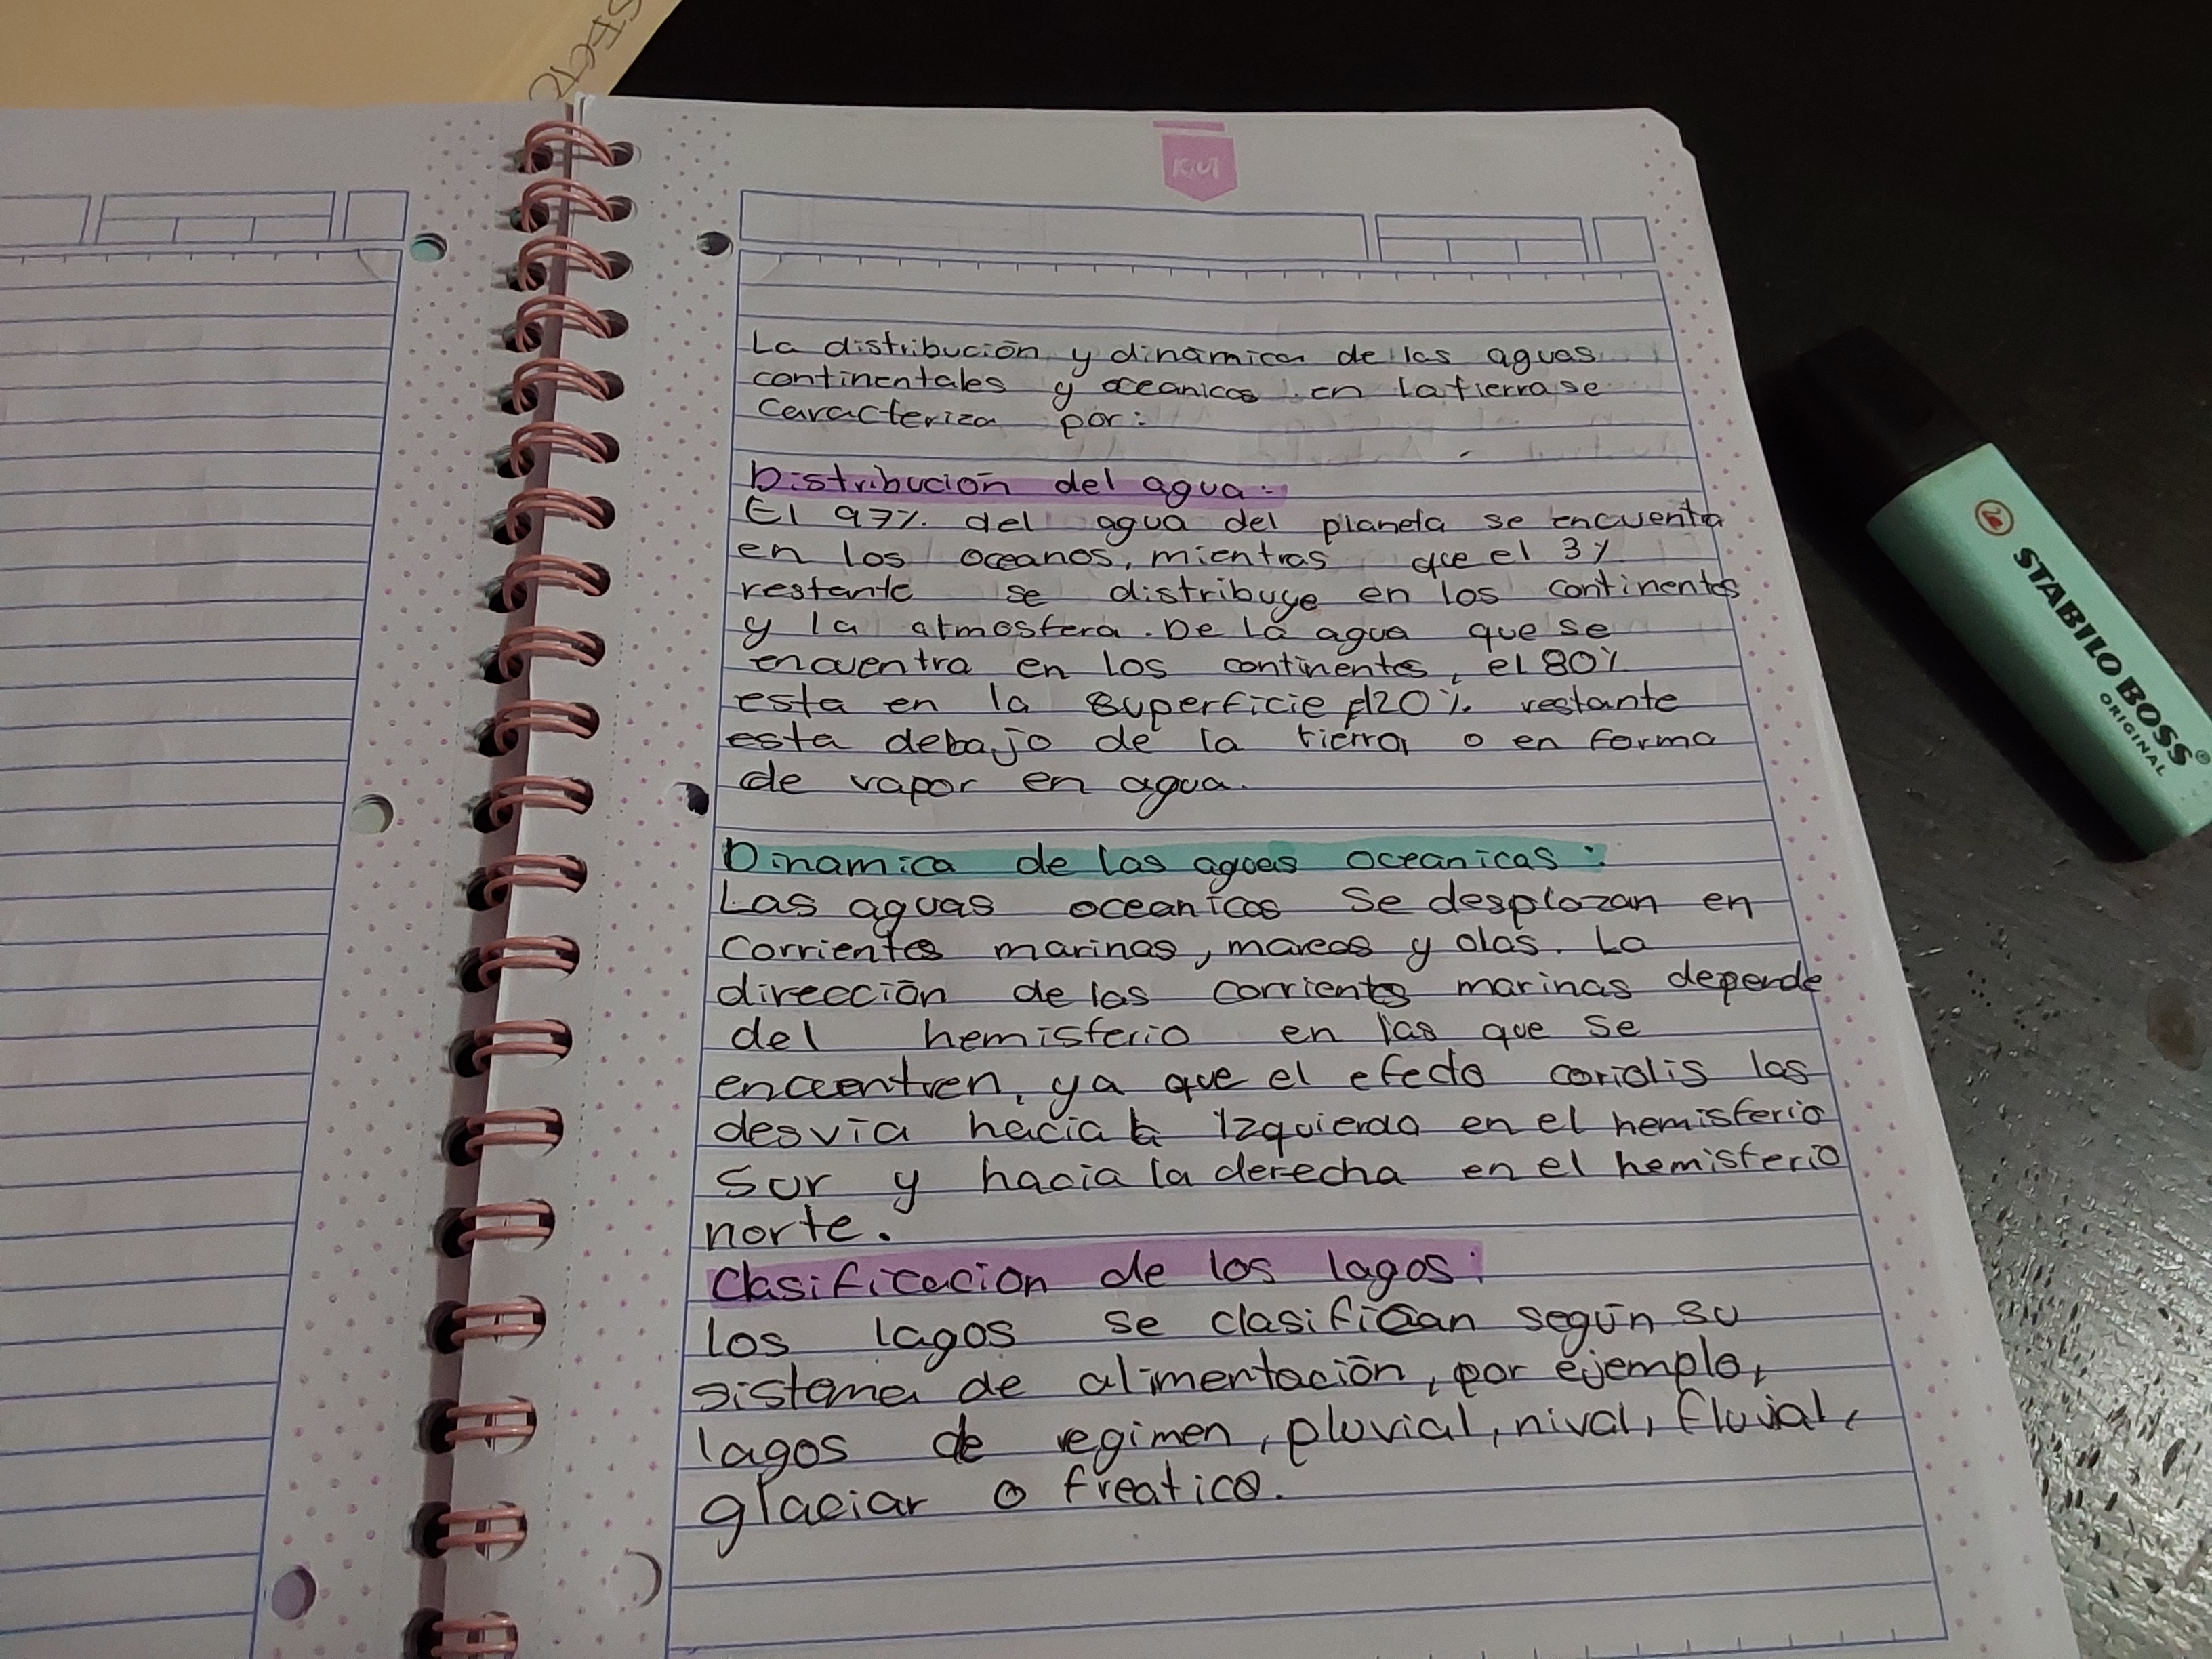 La distribución y dinamica de las aguas
continentales y oceanicas en la tierra se
caracteriza por:
Distribución del agua:
El 97% del agua del planeta se encuentra
en los oceanos, mientras que el 3%
restante se distribuye en los continentes
y la atmosfera. De la agua que se
encuentra en los continentes, el 80%
esta en la superficie el 20% restante
esta debajo de la tierra o en forma
de vapor en agua.
Dinamica de las aguas oceanicas:
Las aguas oceanicas se desplazan en
corrientes marinas, mareas y olas. La
dirección de las corrientes marinas depende
del hemisferio en las que se
encuentren, ya que el efecto coriolis las
desvía hacia la izquierda en el hemisferio
sur y hacia la derecha en el hemisferio
norte.
Clasificación de los lagos:
los lagos se clasifican según su
sistema de alimentación, por ejemplo,
lagos de regimen, pluvial, nival, fluvial,
glaciar o freatico.
STABILO BOSS®
ORIGINAL